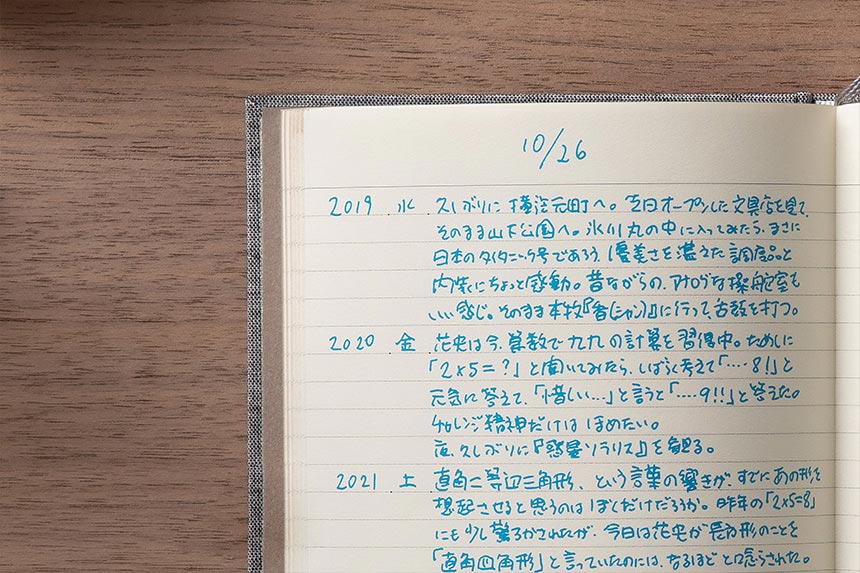 10/26
2019 水 久しぶりに横浜元町へ。翌日オープンした文具店を見て、
そのまま山下公園へ。氷川丸の中に入ってみたら、まさに
日本のタイタニック号であろう、優美さを湛えた調度品と
内装にちょっと感動。昔ながらの、アナログな操舵室も
いい感じ。そのまま本牧『香(シャン)』に行って、舌鼓を打つ。
2020 金 花史は今、算数で九九の計算を習得中。ためしに
「2×5=?」と聞いてみたら、しばらく考えて「‥‥8!」と
元気に答えて、「惜しい…」と言うと「‥‥9!!」と答えた。
チャレンジ精神だけはほめたい。
夜、久しぶりに『惑星ソラリス』を観る。
2021 土 直角二等辺三角形、という言葉の響きが、すでにあの形を
想起させると思うのはぼくだけだろうか。昨年の「2×5=8」
にも少し驚ろかされたが、今日は花史が長方形のことを
「直角四角形」と言っていたのには、なるほどと唸らされた。